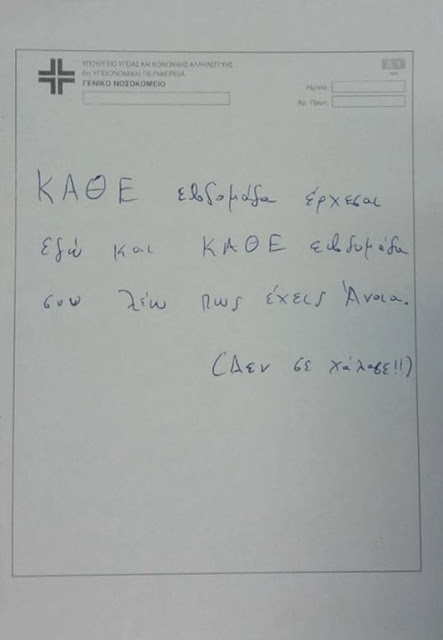 ΥΠΟΥΡΓΕΙΟ ΥΓΕΙΑΣ ΚΑΙ ΚΟΙΝΩΝΙΚΗΣ ΑΛΛΗΛΕΓΓΥΗΣ
6η ΥΓΕΙΟΝΟΜΙΚΗ ΠΕΡΙΦΕΡΕΙΑ
ΓΕΝΙΚΟ ΝΟΣΟΚΟΜΕΙΟ
Ημ/νία
Αρ. Πρωτ.
ΚΑΘΕ εβδομάδα έρχεσαι
εδώ και ΚΑΘΕ εβδομάδα
σου λέω πως έχεις Άνοια.
(Δεν σε χάλασε!!)